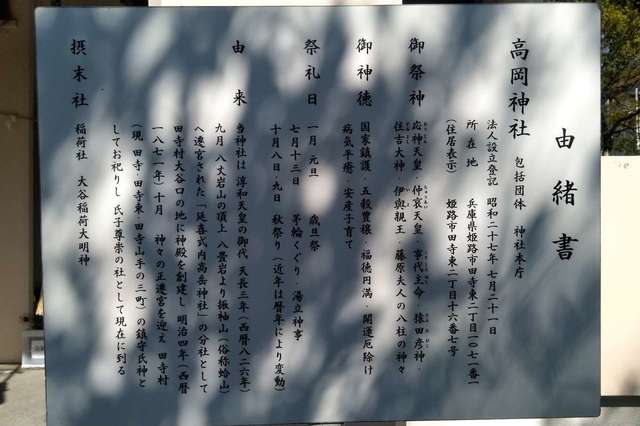 由緒書
高岡神社 包括団体 神社本庁
法人設立登記 昭和二十七年七月二十一日
所在地 兵庫県姫路市田寺東二丁目一〇七一番一
(住居表示) 姫路市田寺東二丁目十六番七号
御祭神 応神天皇・仲哀天皇・事代主命・猿田彦神・
住吉大神・伊與親王・藤原夫人の八柱の神々
御神徳 国家鎮護・五穀豊穣・福徳円満・開運厄除け
病気平癒・安産子育て
祭礼日 一月 元旦 歳旦祭
七月十三日 茅輪くぐり・湯立神事
十月八日・九日 秋祭り(近年は暦年により変動)
由来 当神社は 淳和天皇の御代 天長三年(西暦八二六年)
九月 八丈岩山の頂上 八畳岩より振袖山(俗称蛤山)
へ遷宮された「延喜式内高岳神社」の分社として
田寺村大谷口の地に神殿を創建し 明治四年(西暦
一八七一年)十月 神々の正遷宮を迎え 田寺村
(現 田寺・田寺東・田寺山手の三町)の鎮守氏神と
してお祀りし 氏子尊崇の社として現在に到る
摂末社 稲荷社 大谷稲荷大明神